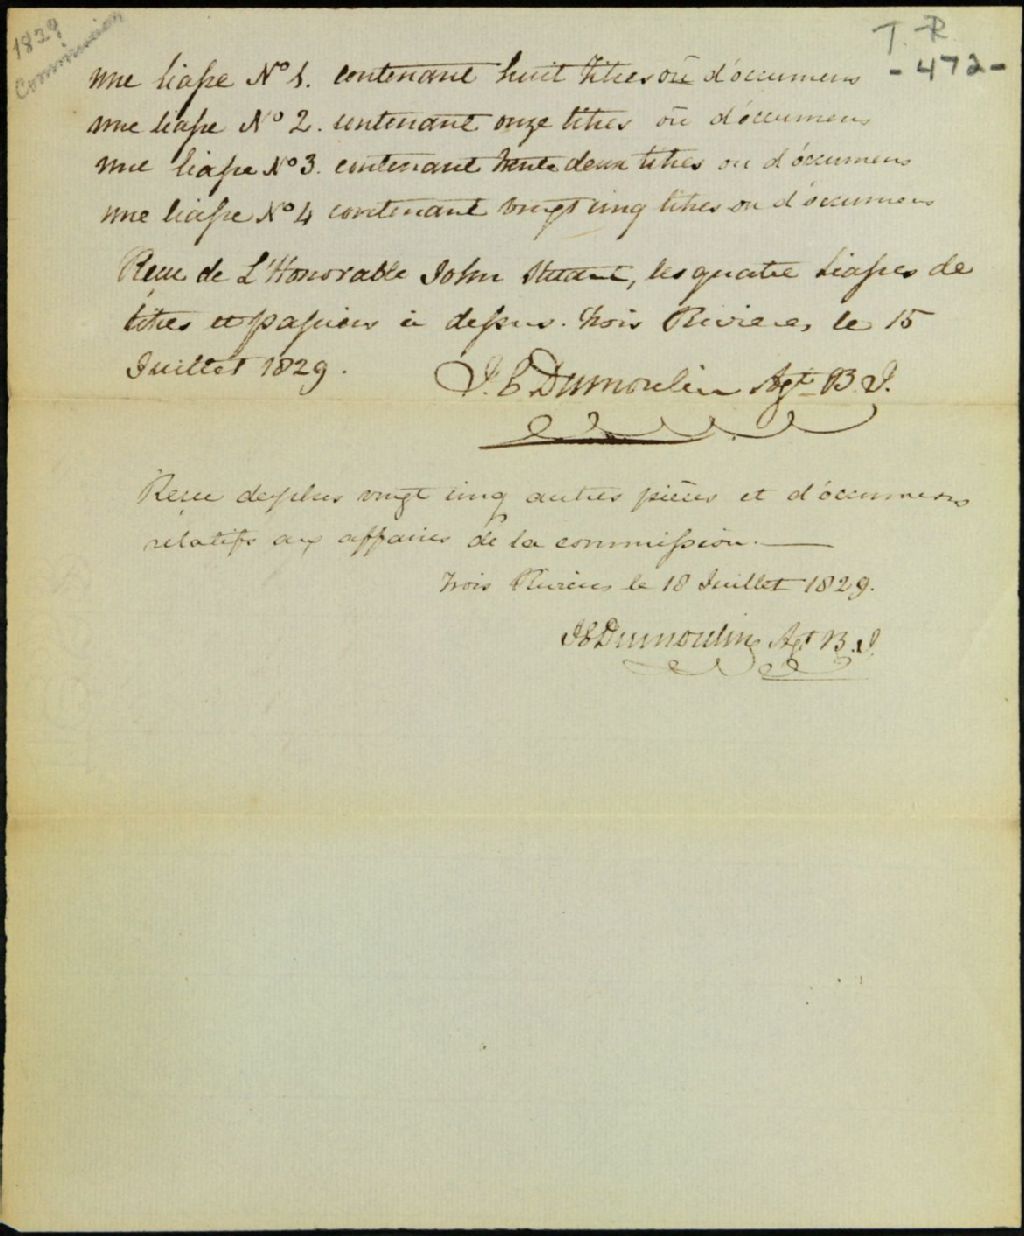 1829
Commission
T. R.
- 472 -
une liasse No 1. contenant huit titres ou d'ocumens
une liasse No 2. contenant onze titres ou d'ocumens
une liasse No 3. contenant trente deux titres ou d'ocumens
une liasse No 4 contenant vingt cinq titres ou d'ocumens
Recu de L'Honorable John Stewart, les quatre liasses de
titres et papiers ci dessus. Trois Rivieres le 15
Juillet 1829.
J. E Dumoulin Agt B. J.
Recu de plus vingt cinq autres pièces et d'ocumens
rélatifs aux affaires de la commission.
Trois Rivieres le 18 Juillet 1829.
JE Dumoulin Agt B. J.